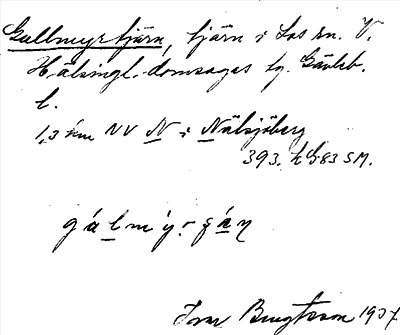 Gullmyrtjärn, tjärn i Los sn. V.
Hälsingl. domsagas tg. Gävleb.
l.
1,3 km NV N i Nälsjöberg
393. h 583 SM.
Ivar Bengtsson 1937